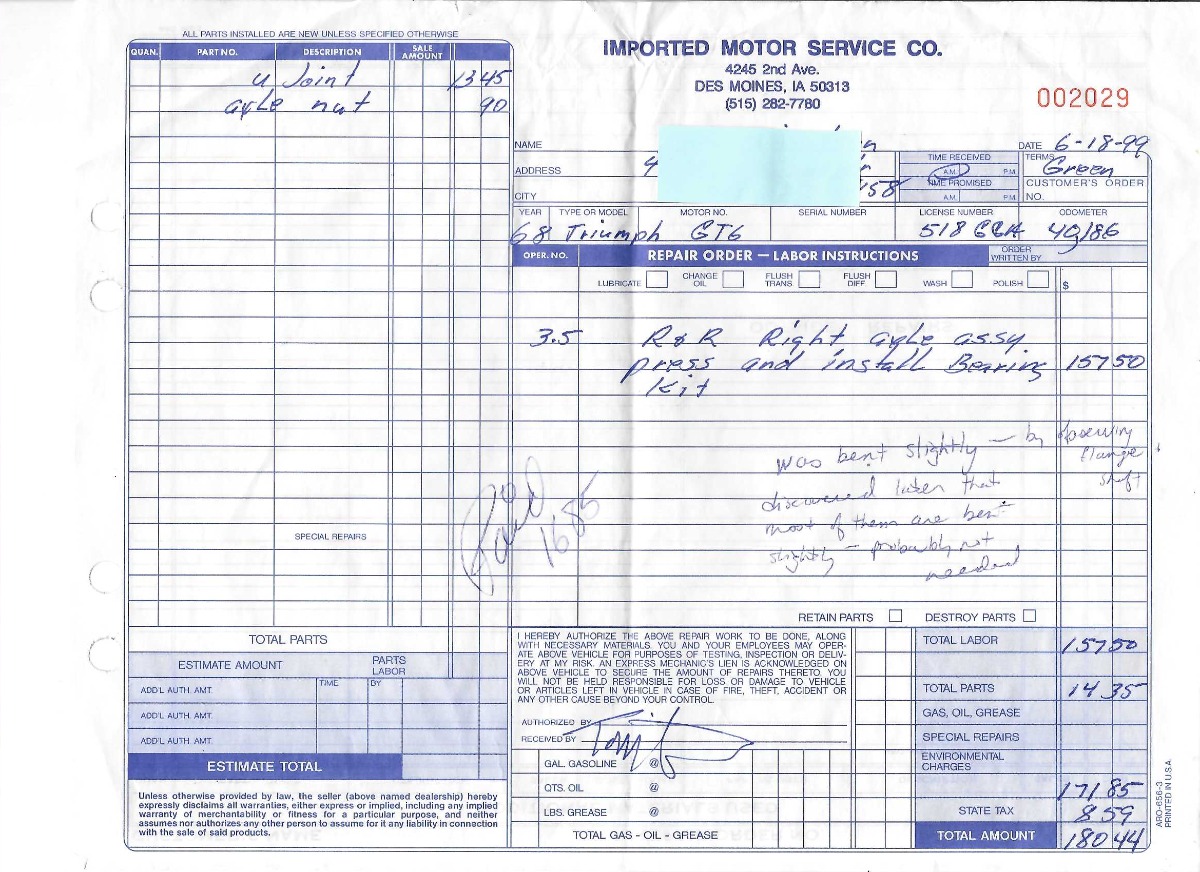 ALL PARTS INSTALLED ARE NEW UNLESS SPECIFIED OTHERWISE
QUAN. PART NO. DESCRIPTION SALE AMOUNT
u Joint 13 45
axle nut 90
SPECIAL REPAIRS
Paid
1685
TOTAL PARTS
ESTIMATE AMOUNT PARTS LABOR
ADD'L AUTH. AMT. TIME BY
ADD'L AUTH. AMT.
ADD'L AUTH. AMT.
ESTIMATE TOTAL
Unless otherwise provided by law, the seller (above named dealership) hereby
expressly disclaims all warranties, either express or implied, including any implied
warranty of merchantability or fitness for a particular purpose, and neither
assumes nor authorizes any other person to assume for it any liability in connection
with the sale of said products.
IMPORTED MOTOR SERVICE CO.
4245 2nd Ave.
DES MOINES, IA 50313
(515) 282-7780
002029
NAME DATE 6-18-99
ADDRESS 4 TIME RECEIVED A.M. P.M. TERMS Green
CITY 58 TIME PROMISED A.M. P.M. CUSTOMER'S ORDER NO.
YEAR TYPE OR MODEL MOTOR NO. SERIAL NUMBER LICENSE NUMBER ODOMETER
68 Triumph GT6 518 49186
OPER. NO. REPAIR ORDER — LABOR INSTRUCTIONS ORDER WRITTEN BY
LUBRICATE CHANGE OIL FLUSH TRANS. FLUSH DIFF. WASH POLISH $
3.5 R&R Right axle assy
press and install Bearing 157 50
kit
was bent slightly — by observing
flange
shaft
discovered later that
most of them are bent
slightly — probably not
needed
RETAIN PARTS DESTROY PARTS
I HEREBY AUTHORIZE THE ABOVE REPAIR WORK TO BE DONE, ALONG
WITH NECESSARY MATERIALS. YOU AND YOUR EMPLOYEES MAY OPER-
ATE ABOVE VEHICLE FOR PURPOSES OF TESTING, INSPECTION OR DELIV-
ERY AT MY RISK. AN EXPRESS MECHANIC'S LIEN IS ACKNOWLEDGED ON
ABOVE VEHICLE TO SECURE THE AMOUNT OF REPAIRS THERETO. YOU
WILL NOT BE HELD RESPONSIBLE FOR LOSS OR DAMAGE TO VEHICLE
OR ARTICLES LEFT IN VEHICLE IN CASE OF FIRE, THEFT, ACCIDENT OR
ANY OTHER CAUSE BEYOND YOUR CONTROL.
AUTHORIZED BY
RECEIVED BY
GAL. GASOLINE @
QTS. OIL @
LBS. GREASE @
TOTAL GAS - OIL - GREASE
TOTAL LABOR 157 50
TOTAL PARTS 14 35
GAS, OIL, GREASE
SPECIAL REPAIRS
ENVIRONMENTAL CHARGES
171 85
STATE TAX 8 59
TOTAL AMOUNT 180 44
ARO-656-3
PRINTED IN U.S.A.